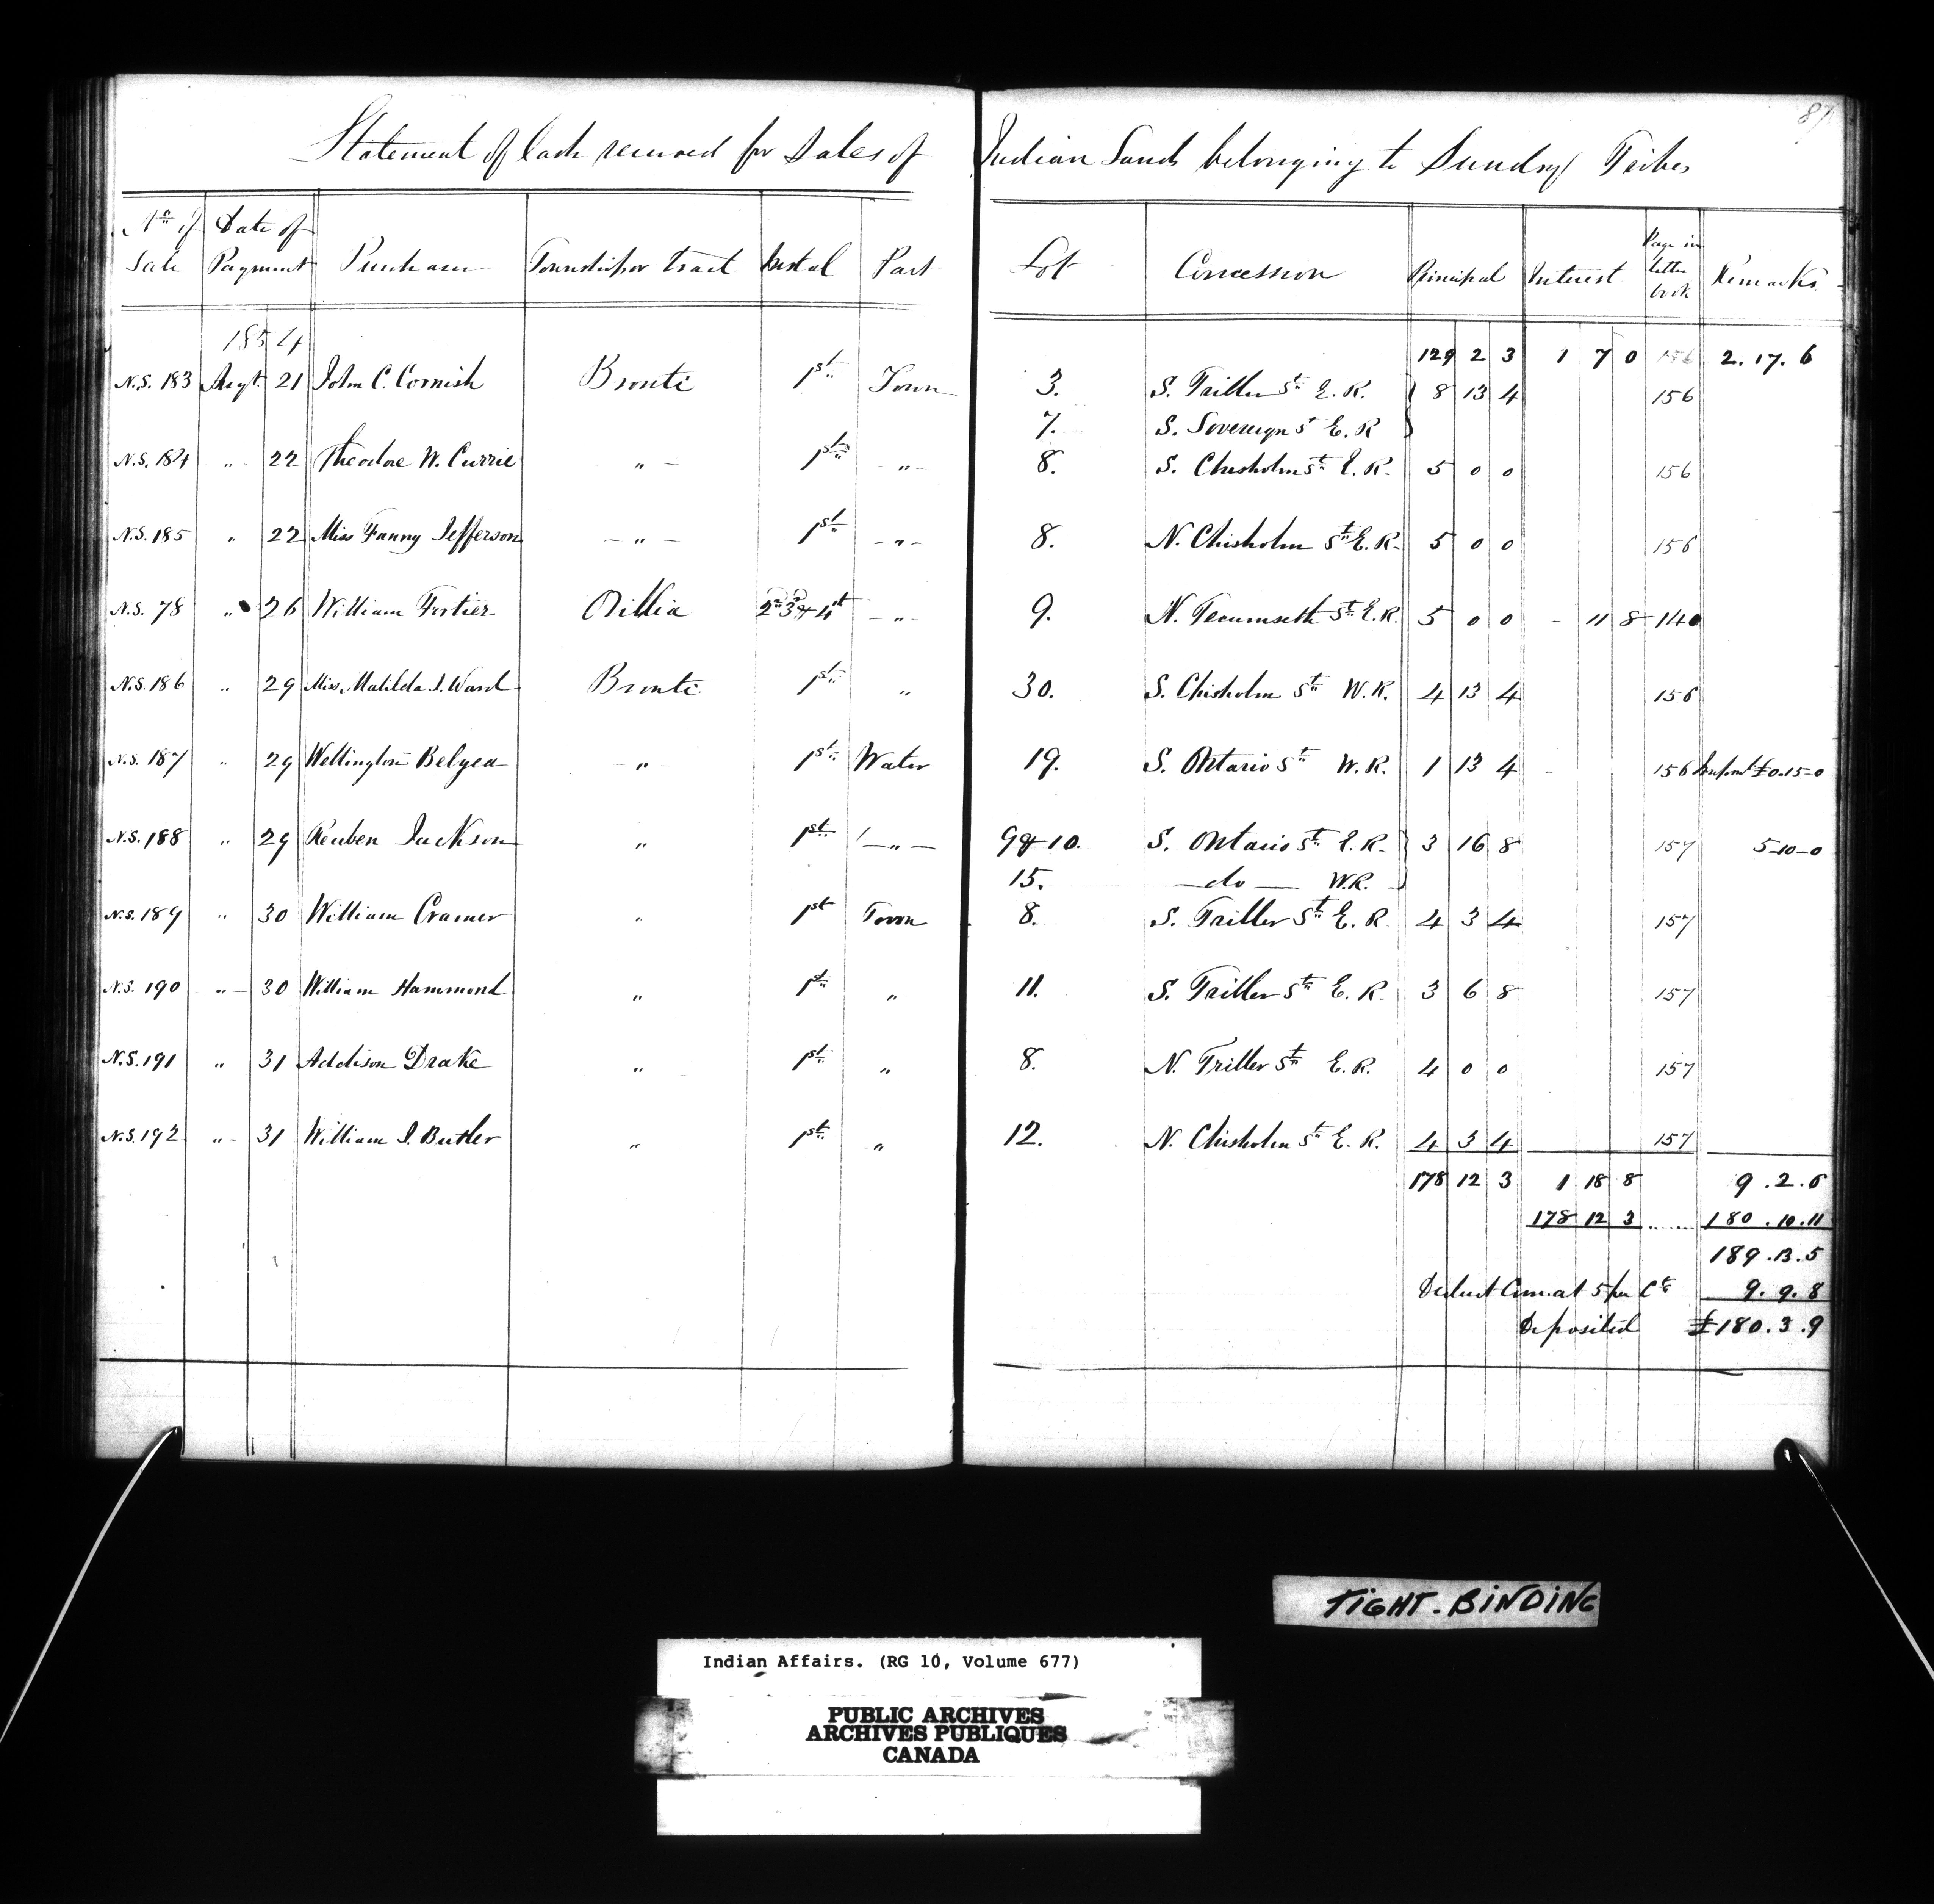 87
Statement of Cash received for Sales of Indian Lands belonging to Sundry Tribes
No of Sale Date of Payment Purchaser Township or tract Instal Part Lot Concession Principal Interest Page in letter book Remarks
1854
129 2 3 1 7 0 156 2.17.6
N.S. 183 Augt. 21 John C. Cornish Bronte 1st Town 3. S. Triller St E.R. 8 13 4 156
7. S. Sovereign St E.R
N.S. 184 " 22 Theodore W. Currie " 1st " 8. S. Chisholm St E.R. 5 0 0 156
N.S. 185 " 22 Miss Fanny Jefferson " 1st " 8. N. Chisholm St E.R. 5 0 0 156
N.S. 78 " 26 William Fortier Orillia 2nd 3d & 4th " 9. N. Tecumseth St E.R. 5 0 0 - 11 8 140
N.S. 186 " 29 Miss Matilda J. Ward Bronte 1st " 30. S. Chisholm St W.R. 4 13 4 156
N.S. 187 " 29 Wellington Belyea " 1st Water 19. S. Ontario St W.R. 1 13 4 156 £0.15-0
N.S. 188 " 29 Reuben Jackson " 1st " 9 & 10. S. Ontario St E.R. 3 16 8 157 5-10-0
15. do W.R.
N.S. 189 " 30 William Cramer " 1st Town 8. S. Triller St E.R 4 3 4 157
N.S. 190 " 30 William Hammond " 1st " 11. S. Triller St E.R. 3 6 8 157
N.S. 191 " 31 Addison Drake " 1st " 8. N. Triller St E.R. 4 0 0 157
N.S. 192 " 31 William J. Butler " 1st " 12. N. Chisholm St E.R. 4 3 4 157
178 12 3 1 18 8 9.2.6
178 12 3 ..... 180.10.11
189.13.5
Deduct Com. at 5 per Ct 9.9.8
Deposited £180.3.9
TIGHT. BINDING
Indian Affairs. (RG 10, Volume 677)
PUBLIC ARCHIVES
ARCHIVES PUBLIQUES
CANADA